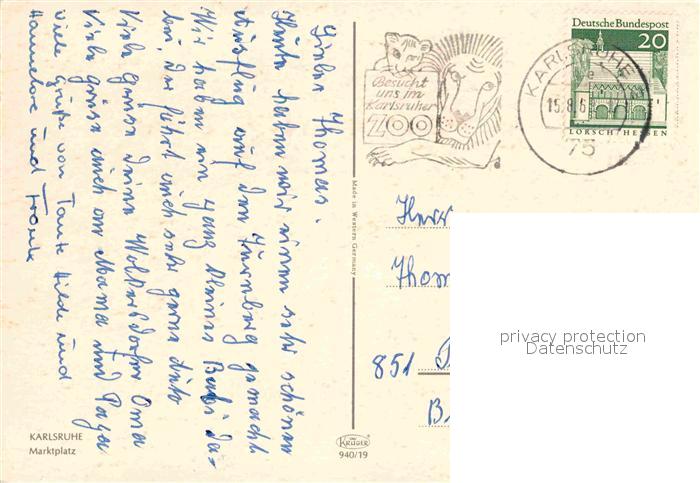 Lieber Thomas.
Heute haben wir einen sehr schönen
Ausflug auf den Turmberg gemacht
Wir haben ein ganz kleines Bubi da-
bei, der fährt auch sehr gerne Auto
Viele Grüsse Deine Wolfartsdorfer Oma
Viele Grüsse auch an Mama und Papa
Viele Grüße von Tante Hilde und
Hannelore und Frank
KARLSRUHE
Marktplatz
Made in Western Germany
KRÜGER
940/19
Besucht
uns im
Karlsruher
ZOO
KARLSRUHE
15.8.6
75
Deutsche Bundespost
20
LORSCH/HESSEN
Herr
Thom
851
B
privacy protection
Datenschutz